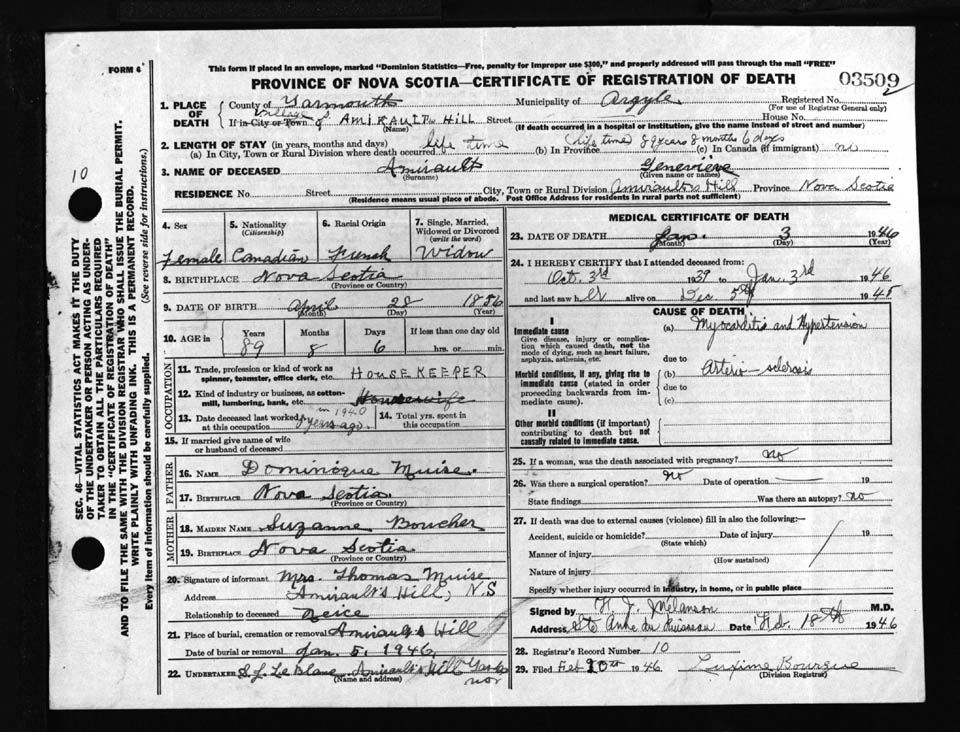 FORM 6
This form if placed in an envelope, marked "Dominion Statistics—Free, penalty for improper use $300," and properly addressed will pass through the mail "FREE"
PROVINCE OF NOVA SCOTIA—CERTIFICATE OF REGISTRATION OF DEATH
03509
2
10
SEC. 46—VITAL STATISTICS ACT MAKES IT THE DUTY
OF THE UNDERTAKER OR PERSON ACTING AS UNDER-
TAKER TO OBTAIN ALL THE PARTICULARS REQUIRED
IN THE "CERTIFICATE OF REGISTRATION OF DEATH"
AND TO FILE THE SAME WITH THE DIVISION REGISTRAR WHO SHALL ISSUE THE BURIAL PERMIT.
WRITE PLAINLY WITH UNFADING INK. THIS IS A PERMANENT RECORD.
Every item of information should be carefully supplied. (See reverse side for instructions.)
1. PLACE OF DEATH
County of Yarmouth Municipality of Argyle Registered No.
(For use of Registrar General only)
If in City or Town Village of AMIRAULT'S HILL Street House No.
(Name) (If death occurred in a hospital or institution, give the name instead of street and number)
2. LENGTH OF STAY (in years, months and days)
(a) In City, Town or Rural Division where death occurred life time (b) In Province (life time) 89 years 8 months 6 days (c) In Canada (if immigrant) no
3. NAME OF DECEASED Amirault Genevieve
(Surname) (Given name or names)
RESIDENCE No. Street City, Town or Rural Division Amirault's Hill Province Nova Scotia
(Residence means usual place of abode. Post Office Address for residents in rural parts not sufficient)
4. Sex 5. Nationality (Citizenship) 6. Racial Origin 7. Single, Married, Widowed or Divorced (write the word)
Female Canadian French Widow
8. BIRTHPLACE Nova Scotia
(Province or Country)
9. DATE OF BIRTH April 28 1856
(Month) (Day) (Year)
10. AGE in Years Months Days If less than one day old
89 8 6 hrs. or min.
OCCUPATION
11. Trade, profession or kind of work as spinner, teamster, office clerk, etc. HOUSEKEEPER
12. Kind of industry or business, as cotton-mill, lumbering, bank, etc. Housewife
13. Date deceased last worked at this occupation in 1940 years ago. 14. Total yrs. spent in this occupation
15. If married give name of wife or husband of deceased
FATHER
16. NAME Dominique Muise.
17. BIRTHPLACE Nova Scotia
MOTHER
18. MAIDEN NAME Suzanne Boucher
19. BIRTHPLACE Nova Scotia
(Province or Country)
20. Signature of informant Mrs. Thomas Muise
Address Amirault's Hill, N.S
Relationship to deceased Neice
21. Place of burial, cremation or removal Amirault's Hill
Date of burial or removal Jan. 5, 1946
22. UNDERTAKER S.J. Le Blanc. Amirault's Hill
(Name and address)
MEDICAL CERTIFICATE OF DEATH
23. DATE OF DEATH Jan. 3 1946
(Month) (Day) (Year)
24. I HEREBY CERTIFY that I attended deceased from:
Oct. 3rd 1939 to Jan. 3rd 1946
and last saw her alive on Dec. 5th 1945
CAUSE OF DEATH
I
Immediate cause
Give disease, injury or complication which caused death, not the mode of dying, such as heart failure, asphyxia, asthenia, etc.
(a) Myocarditis and Hypertension
due to
Morbid conditions, if any, giving rise to immediate cause (stated in order proceeding backwards from immediate cause).
(b) Arterio-sclerosis
due to
(c)
II
Other morbid conditions (if important) contributing to death but not causally related to immediate cause.
25. If a woman, was the death associated with pregnancy? no
26. Was there a surgical operation? no Date of operation — 19
State findings Was there an autopsy? no
27. If death was due to external causes (violence) fill in also the following:—
Accident, suicide or homicide? Date of injury 19
(State which)
Manner of injury
(How sustained)
Nature of injury
Specify whether injury occurred in industry, in home, or in public place
Signed by H. J. Melanson M.D.
Address Ste Anne du Ruisseau Date Feb. 18th 1946
28. Registrar's Record Number 10
29. Filed Feb 20th 1946 Bourque
(Division Registrar)